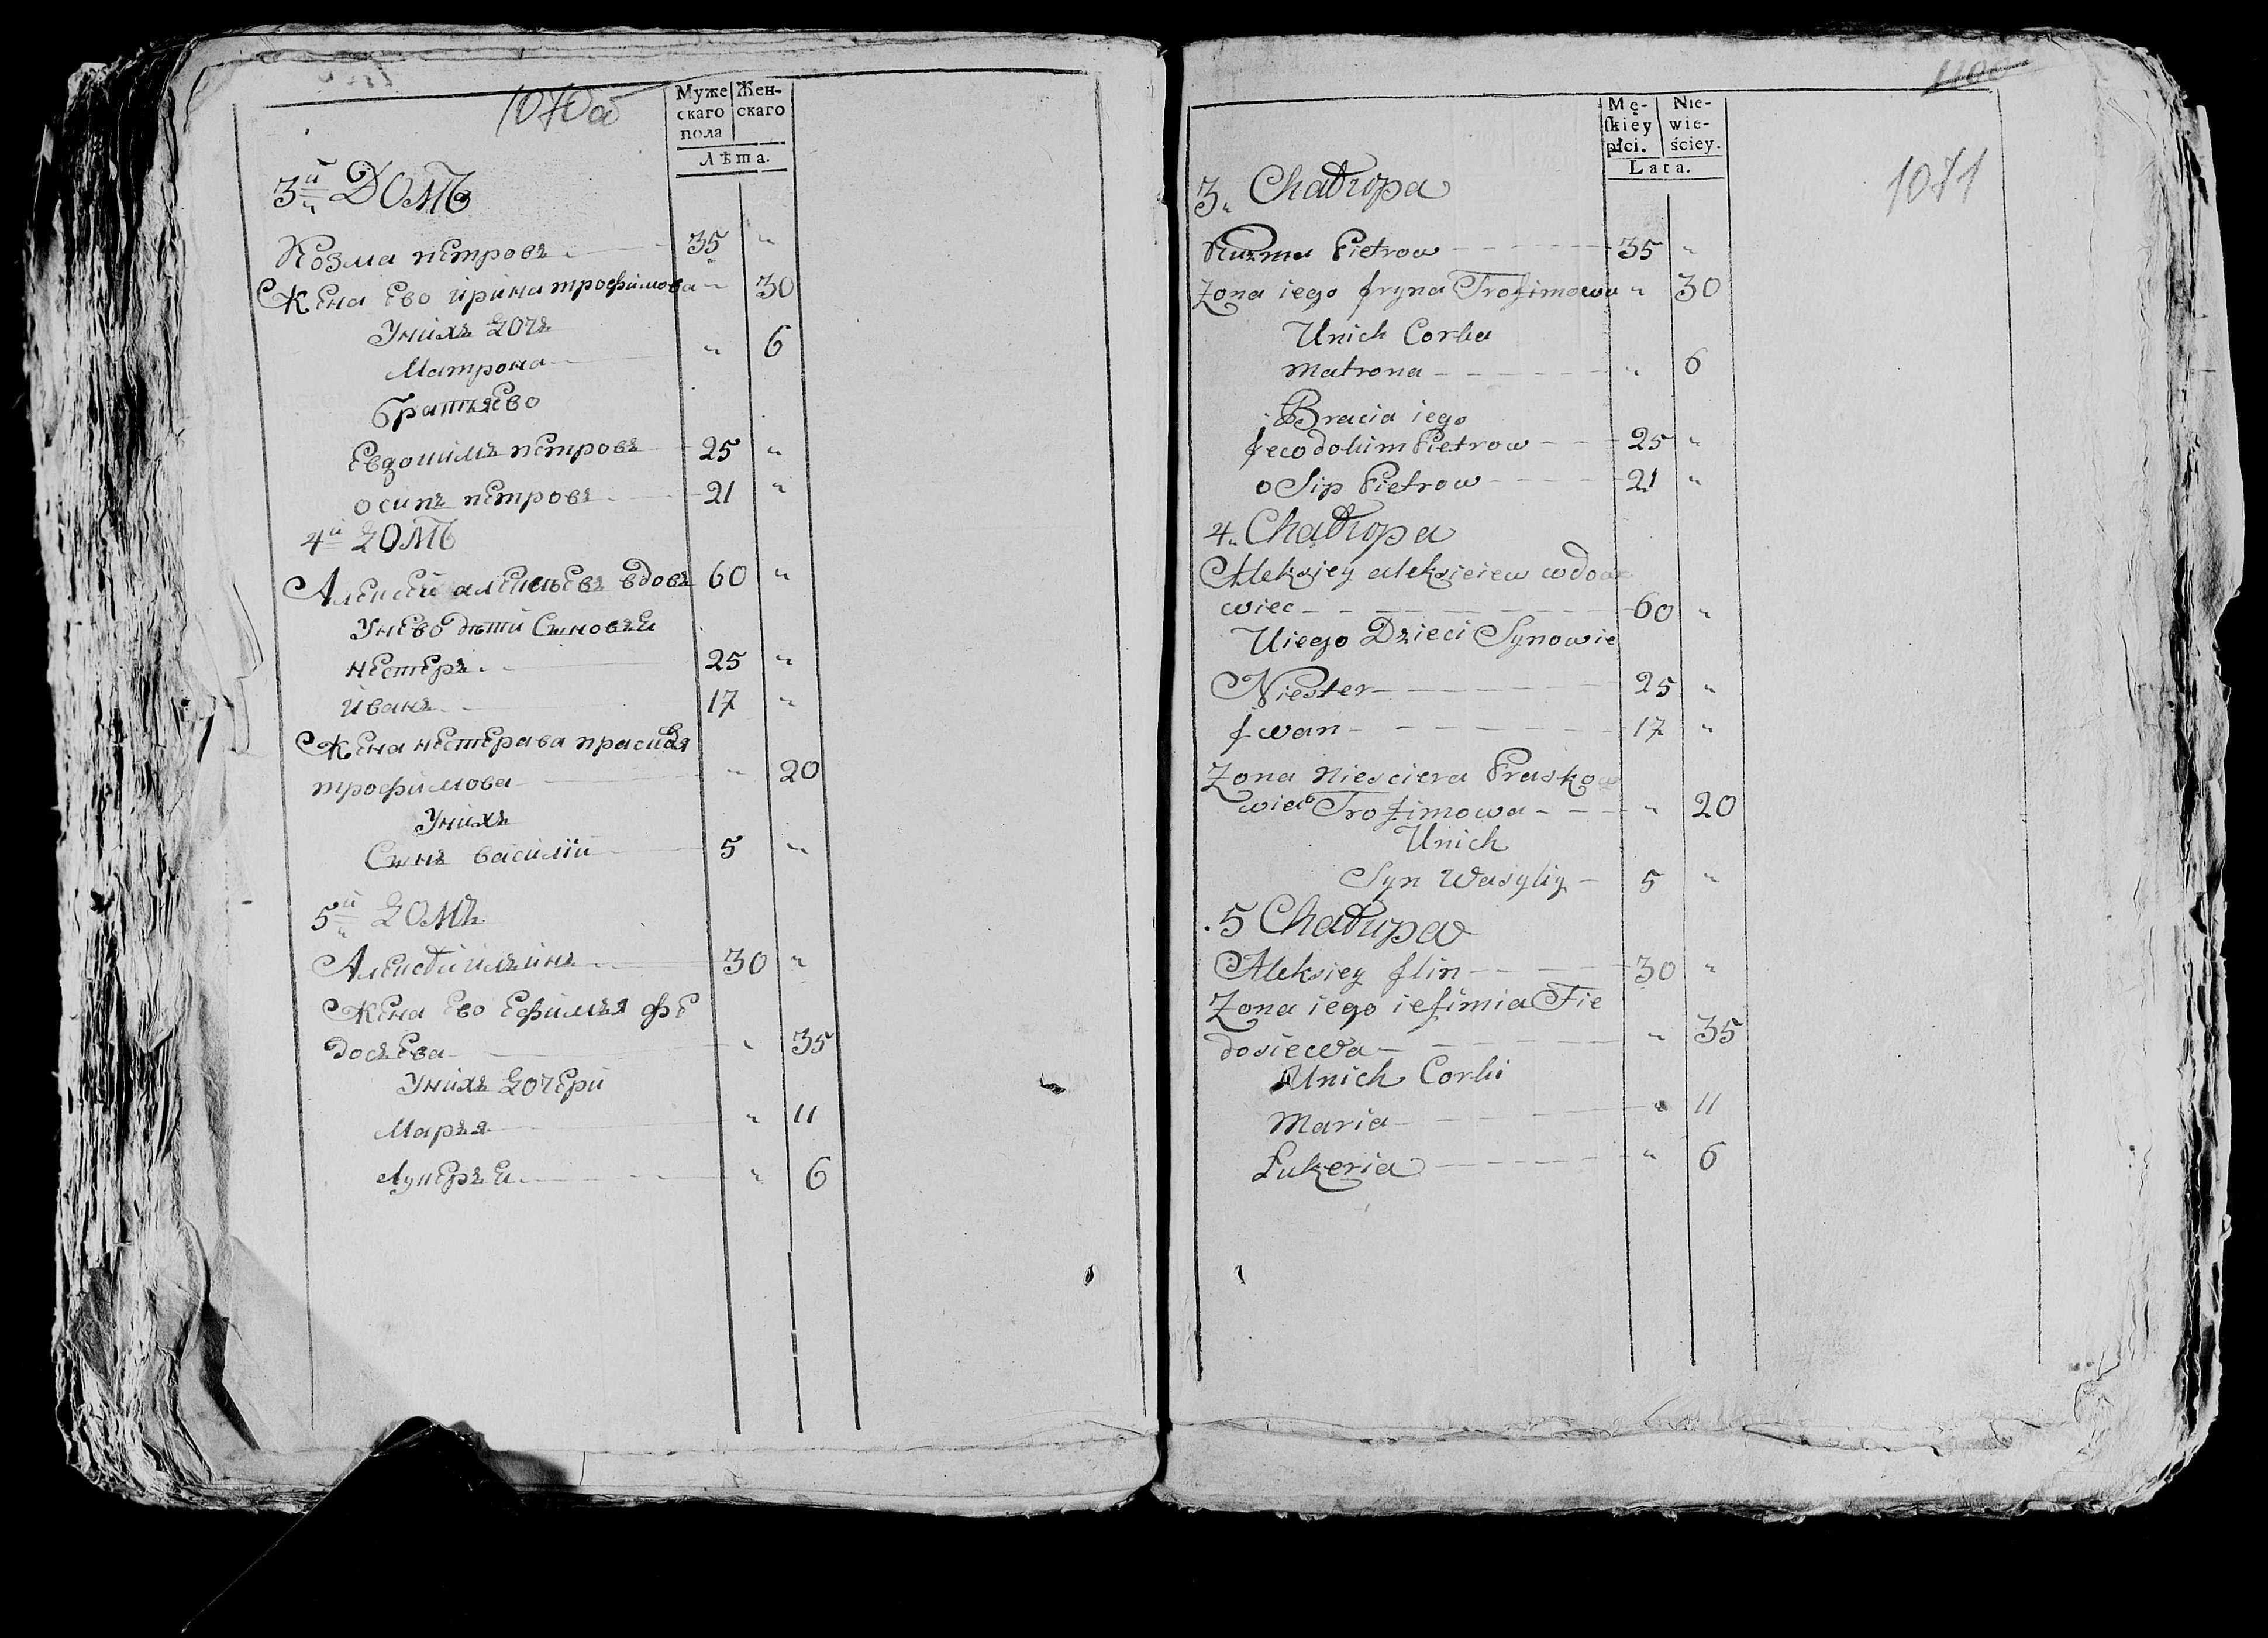 1070об
Муже Жен-
скаго скаго
пола
Лѣта.
3й ДОМЪ
Козма петровъ 35 "
Жена Ево ирина трофимова " 30
Унихъ дочъ
Матрона " 6
братьяЕво
Евдокимъ петровъ 25 "
осипъ петровъ 21 "
4й ДОМЪ
Алексей алексѣевъ вдовъ 60 "
УнЕво дѣти Сыновьи
нестеръ 25 "
иванъ 17 "
Жена нестерава прасковя
трофимова " 20
Унихъ
Сынъ василій 5 "
5й ДОМЪ
Алексѣй ильинъ 30 "
Жена Ево Ефимья фе
досьева " 35
Унихъ дочери
Марья " 11
Лукерьи " 6
1100
1071
Mę- Nie-
skiey wie-
płci. ściey.
Lata.
3. Chałupa
Kuzma Pietrow 35 "
Zona iego Jryna Trofimowa " 30
Unich Corka
Matrona " 6
Bracia iego
Jewdokim Pietrow 25 "
o Sip Pietrow 21 "
4. Chałupa
Aleksiey aleksieiew wdow
wiec 60 "
Uiego Dzieci Synowie
Niester 25 "
Jwan 17 "
Zona niesciera Praskow
wia Trofimowa " 20
Unich
Syn Wasyliy 5 "
5 Chałupa
Aleksiey Jlin 30 "
Zona iego iefimia Fie
dosiewa " 35
Unich Corki
Maria " 11
Łukeria " 6